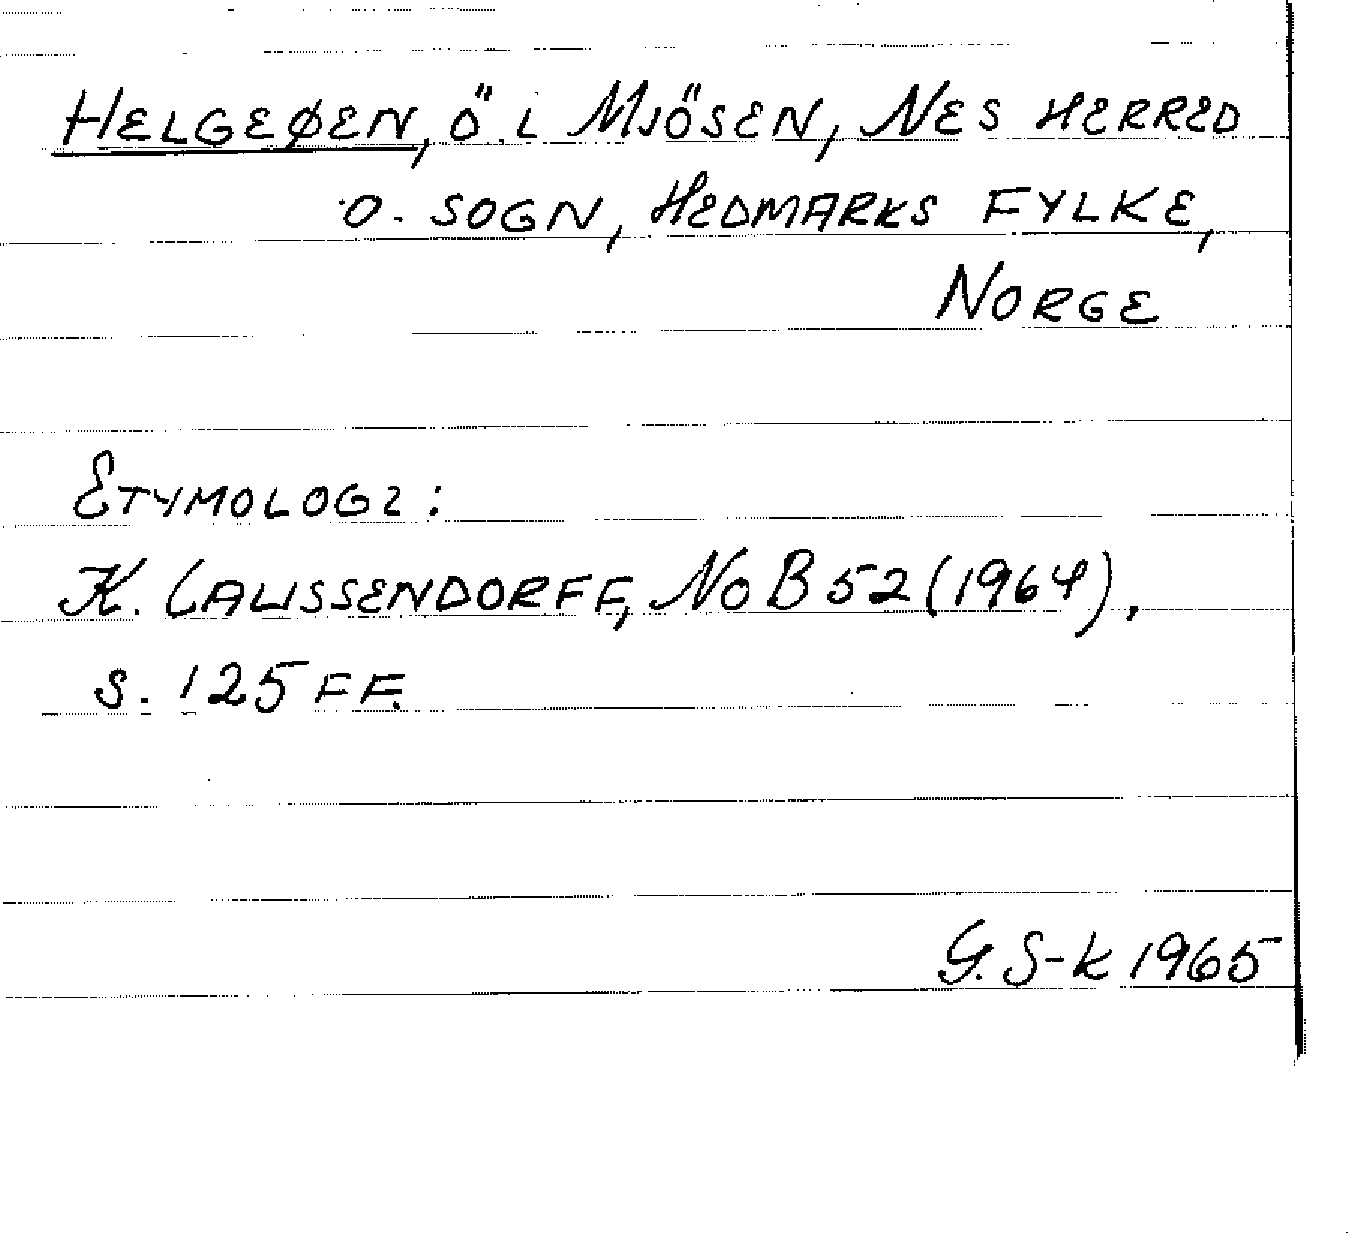 HELGEØEN, Ö. i MJÖSEN, NES HERRED
O. SOGN, HEDMARKS FYLKE,
NORGE
ETYMOLOGI:
K. CAUSSENDORFF, NoB 52 (1964),
S. 125 FF.
G. S-K 1965